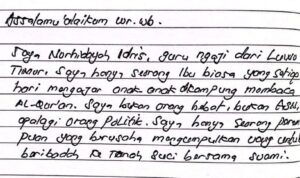 Assalamu'alaikum wr. wb.
Saya Norhidayah Idris, guru ngaji dari Luwu
Timur, Saya hanya seorang Ibu biasa yang setiap
hari mengajar anak anak dikampung membaca
AL-Qur'an. Saya bukan orang hebat, bukan ASN,
apalagi orang Politik. Saya hanya seorang perem
puan yang berusaha mengumpulkan uang untuk
beribadah ke Tanah Suci bersama suami.